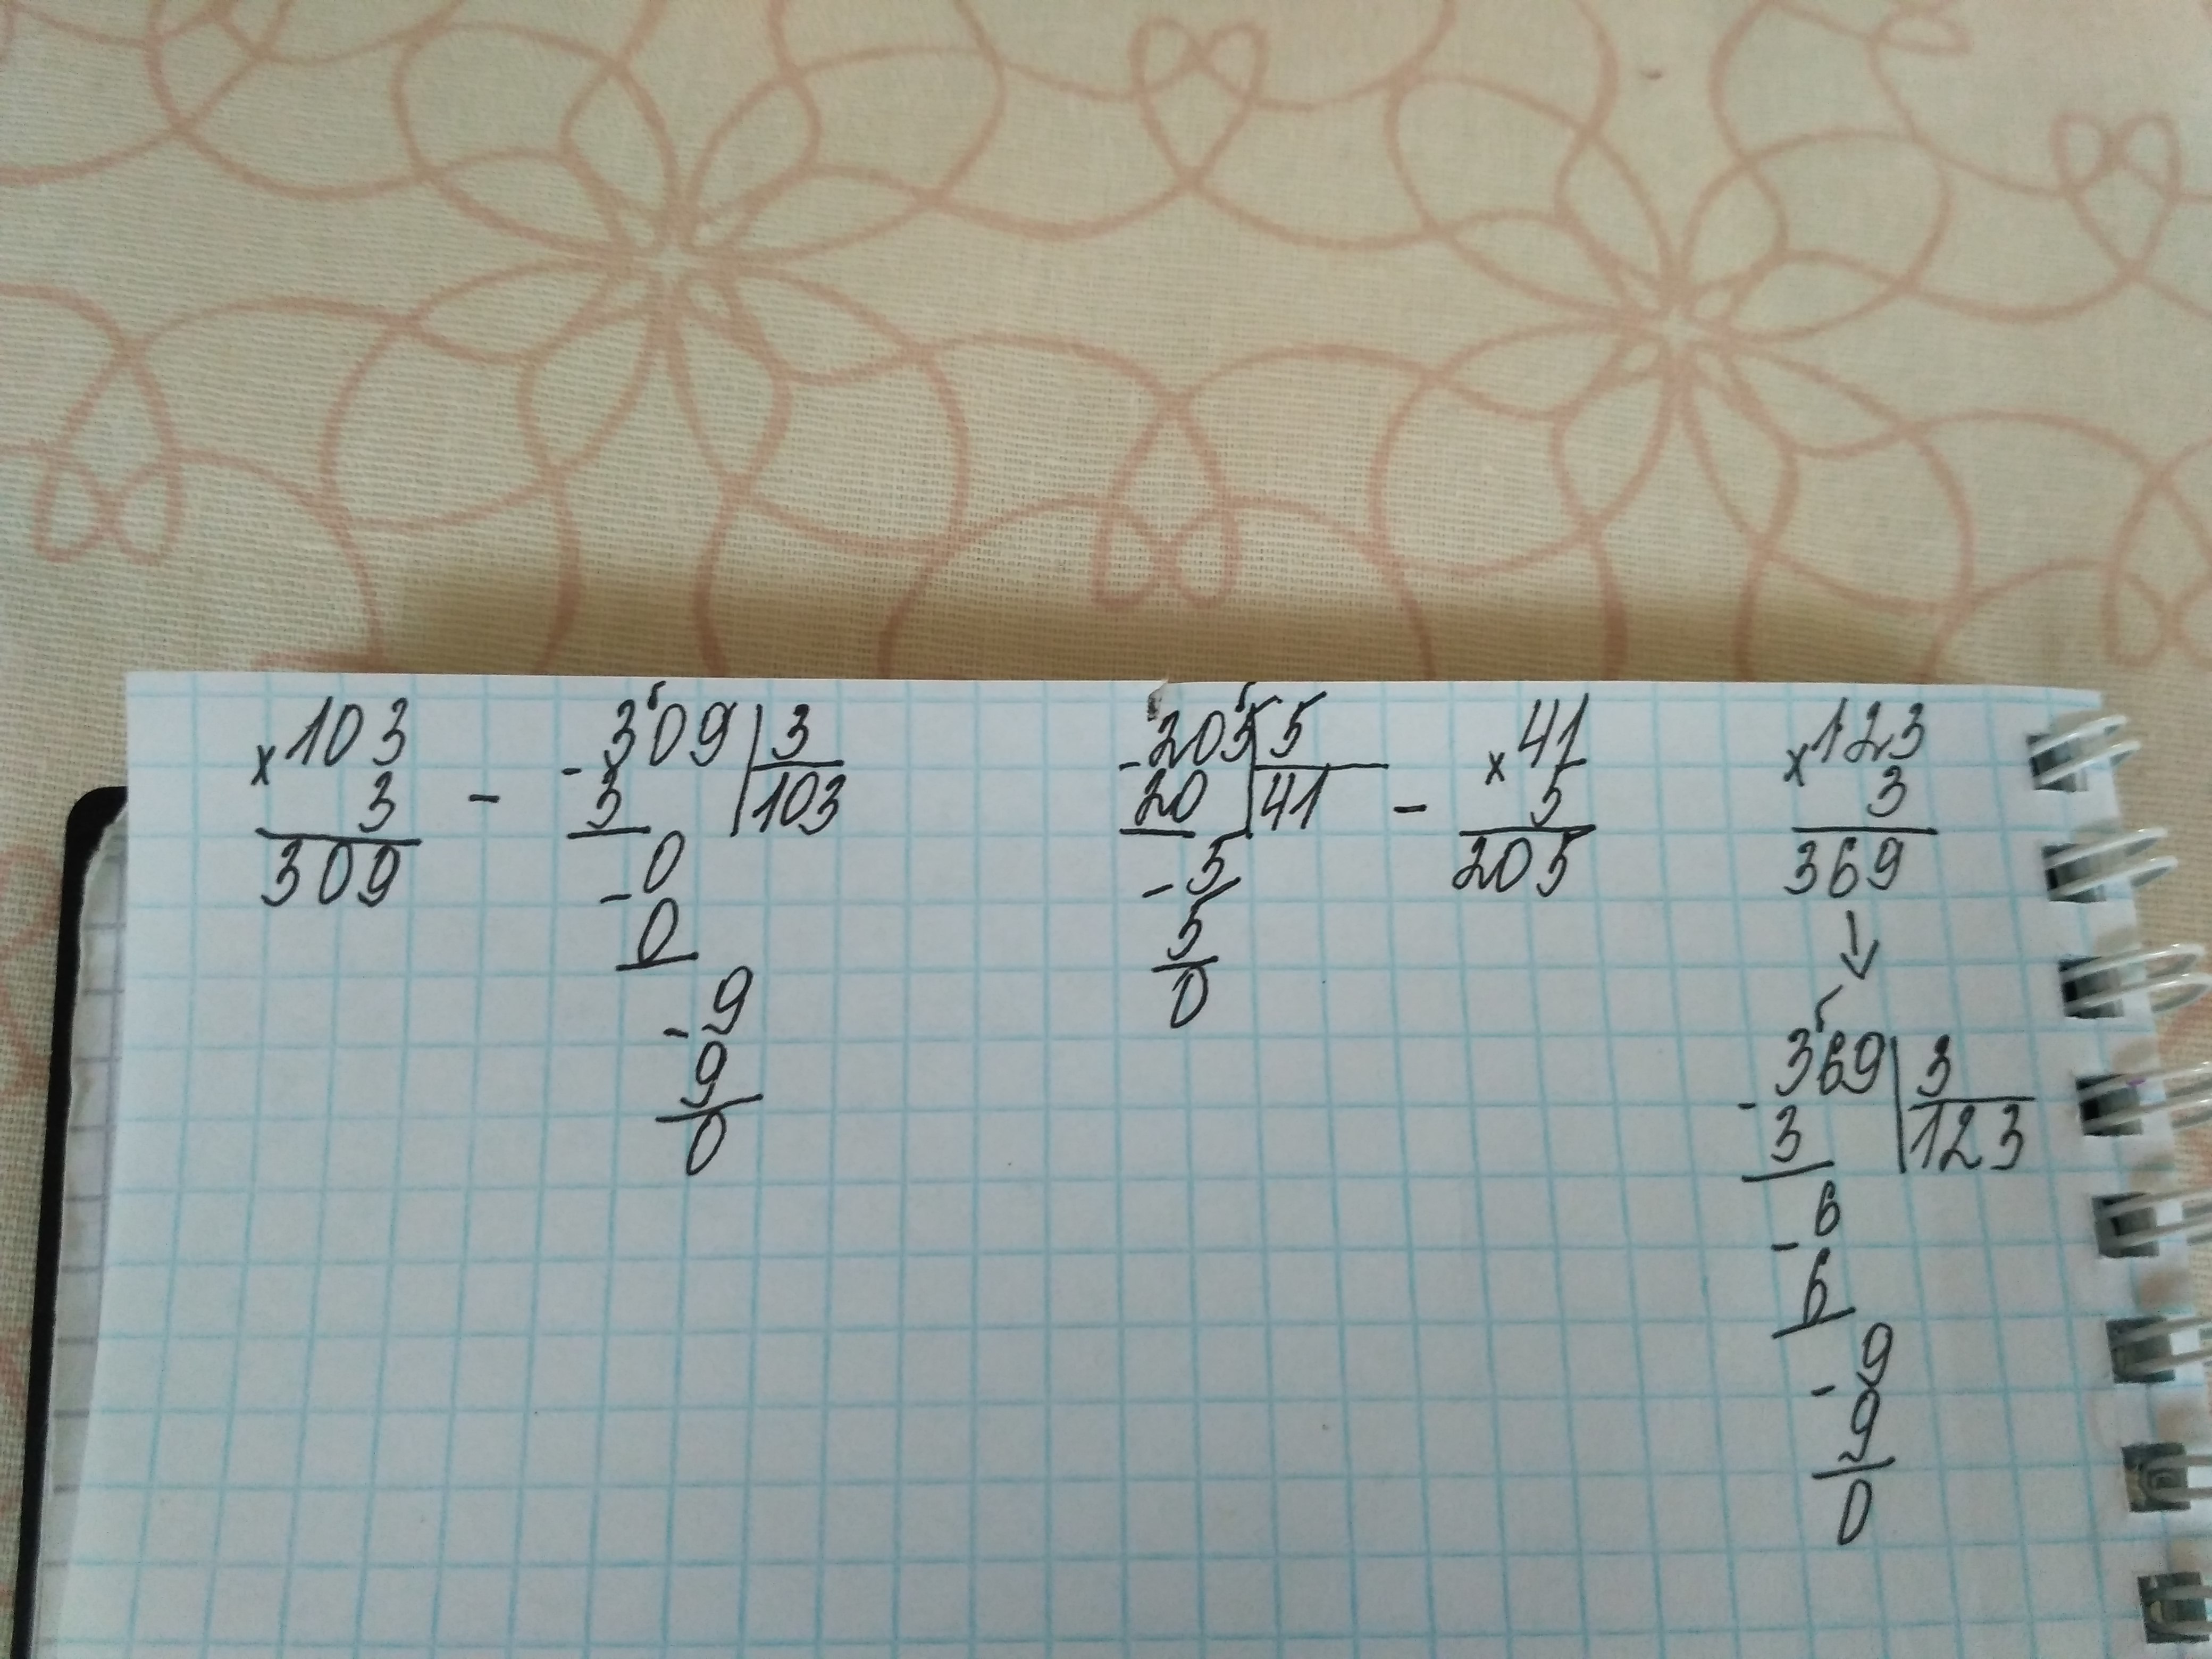 ×103
3
309
-
-309|3
3 103
0
-0
-9
9
0
-205|5
20 41
-5
5
0
-
×41
5
205
×123
3
369
↓
-369|3
3 123
-6
6
-9
9
0